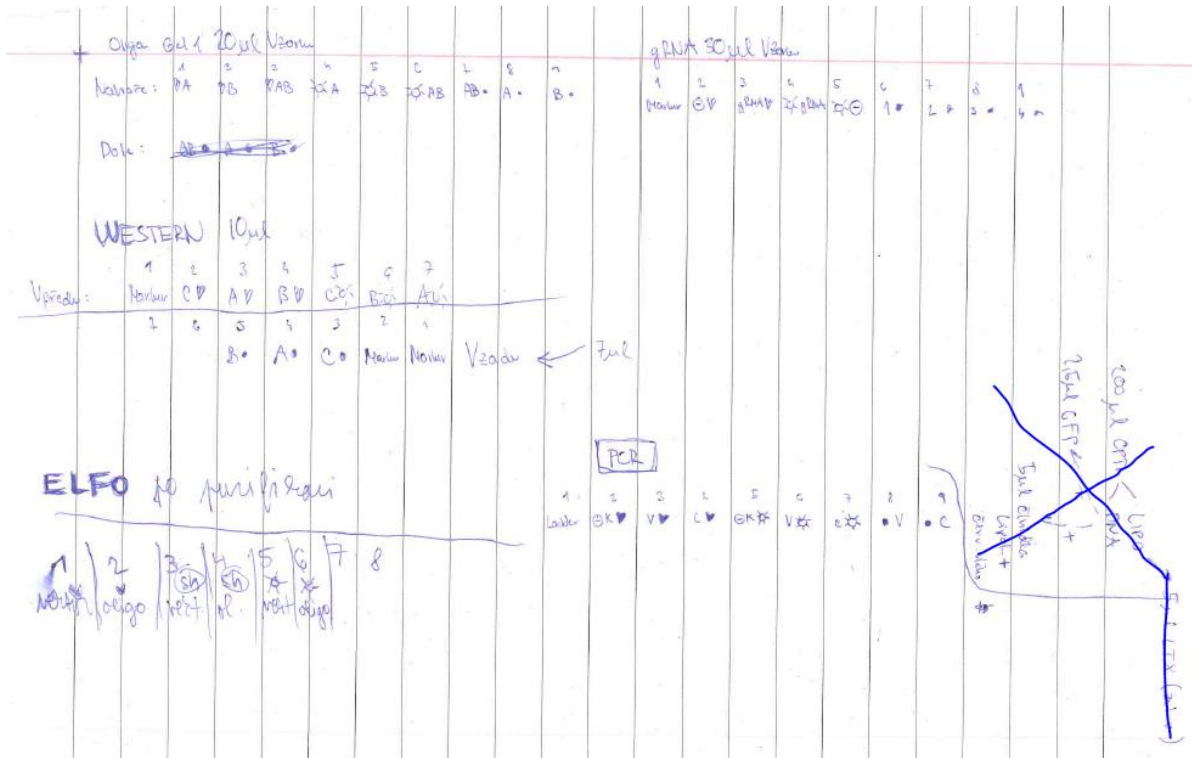 Gel 1 20 µl Vzorku
1 2 3 4 5 6 7 8 9
Nahoře: ♥A ♥B ♥AB ☼A ☼B ☼AB AB• A• B•
Dole: AB• A• B•
gRNA 30 µl Vzorku
1 2 3 4 5 6 7 8 9
Marker ⊖♥ gRNA♥ ☼gRNA ☼⊖ 1• 2• 3• 4•
WESTERN 10 µl
1 2 3 4 5 6 7
Vpředu: Marker C♥ A♥ B♥ C☼ B☼ A☼
7 6 5 4 3 2 1
B• A• C• Marker Marker Vzadu ← 7 µl
PCR
1 2 3 4 5 6 7 8 9
Ladder ⊖K♥ V♥ C♥ ⊖K☼ V☼ C☼ •V •C
ELFO po purifikaci
1 2 3 4 5 6 7 8
oligo sh sh oligo
200 µl OPTI < LIPO
DNA
2,5 µl GFP
5 µl